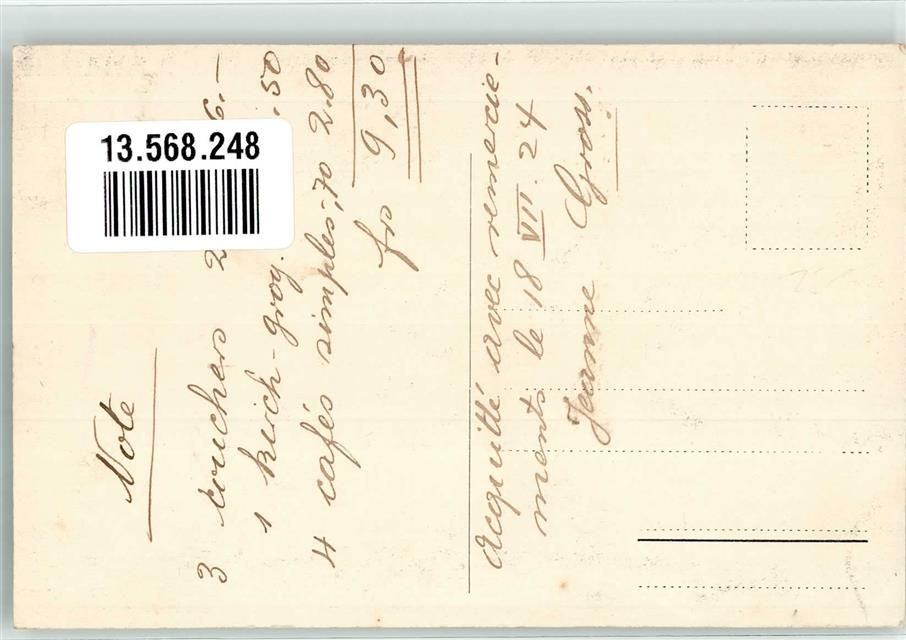 13.568.248
Note
3 couchers 2 6.—
1 kirsch-groy. .50
4 cafés simples -,70 2.80
frs 9,30
Acquitté avec remercie-
ments le 18 VII. 24
Jeanne Gross.